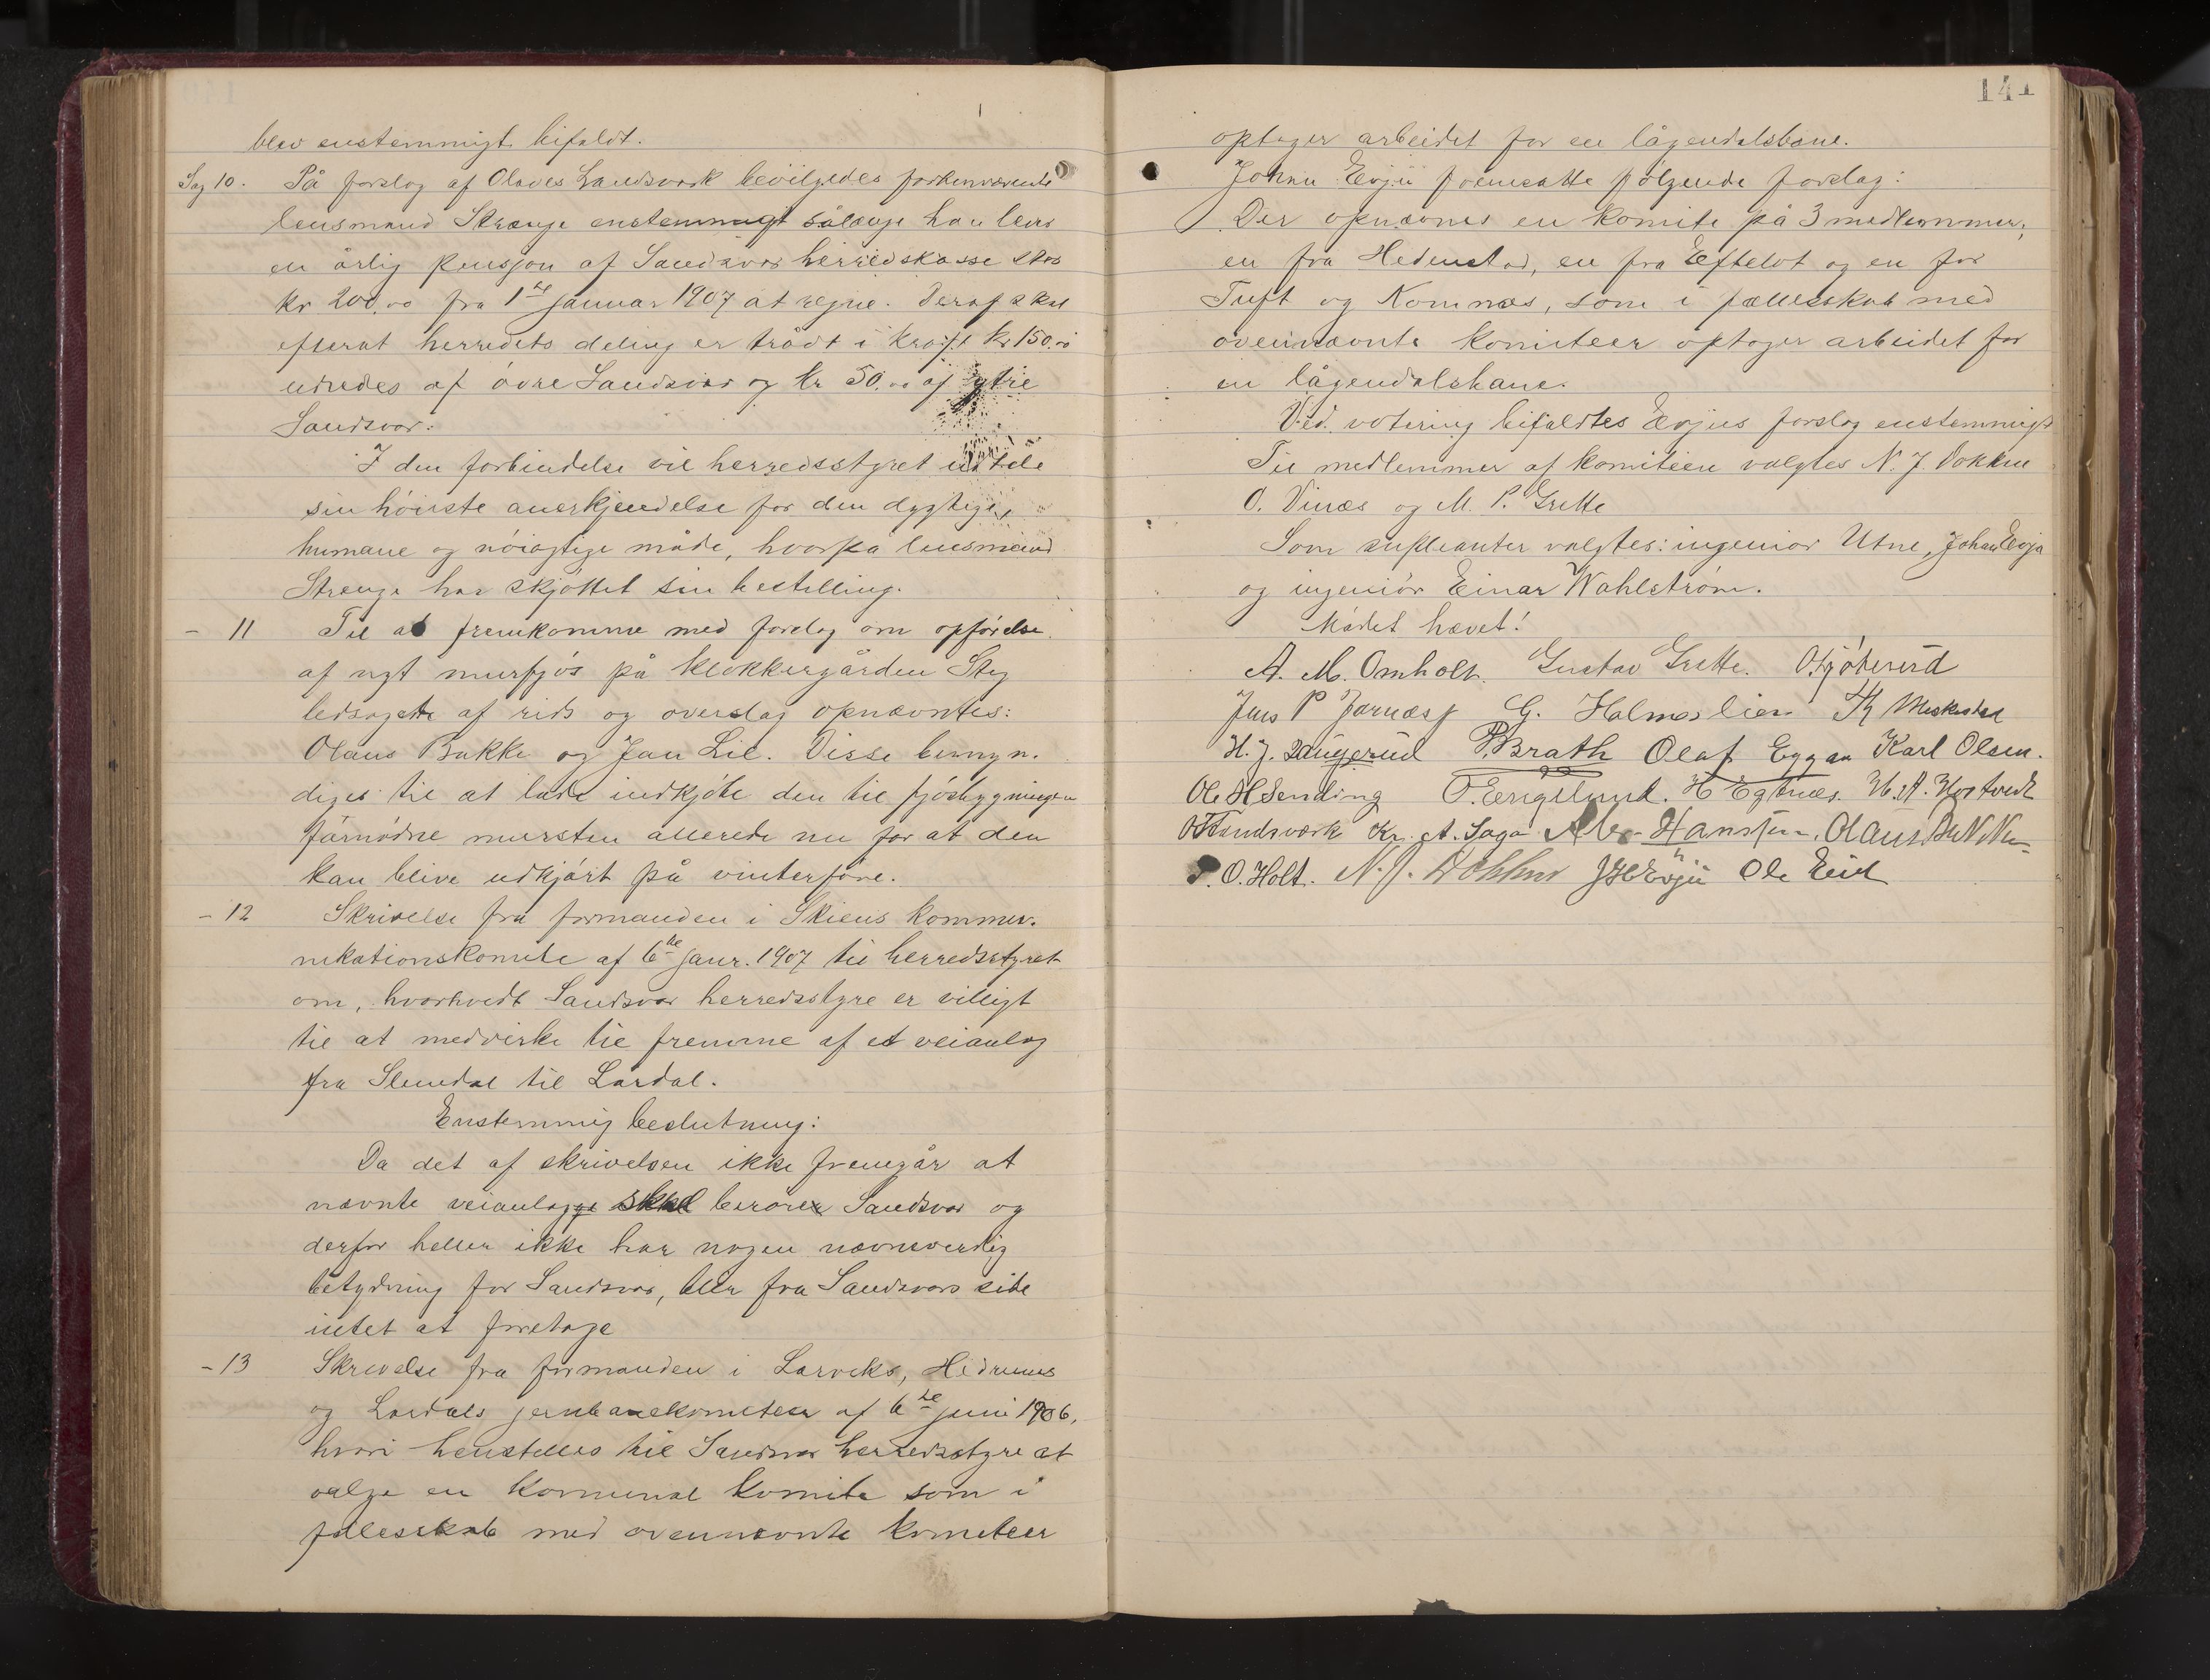 blev enstemmigt bifaldt.
Sag 10. På forslag af Olaves Landsverk bevilgedes forhenværende
lensmand Strænge enstemmigt sålænge han lever
en årlig pensjon af Sandsvær herredskasse stor
kr 200.00 fra 1ste januar 1907 at regne. Deraf skal
efterat herredets deling er trådt i kraft kr 150.00
udredes af øvre Sandsvær og kr 50.00 af ytre
Sandsvær.
I den forbindelse vil herredsstyret uttale
sin høieste anerkjendelse for den dygtige,
humane og nøiagtige måde, hvorpå lensmand
Strenge har skjøttet sin bestilling.
- 11 Til at fremkomme med forslag om opførelse
af nyt murfjøs på klokkergården Steg
ledsaget af rids og overslag opnævntes:
Olaus Bakke og Jan Lie. Disse bemyn-
diges til at lade indkjøbe den til fjøsbygningen
fårnødne mursten allerede nu for at den
kan blive udkjørt på vinterføre.
- 12 Skrivelse fra formanden i Skiens kommu-
nikationskomite af 6te janr. 1907 til herredsstyret
om, hvorhvidt Sandsvær herredsstyre er villigt
til at medvirke til fremme af et veianlæg
fra Slemdal til Lardal.
Enstemmig beslutning:
Da det af skrivelsen ikke fremgår at
nævnte veianlæg berører Sandsvær og
derfor heller ikke har nogen nævneverdig
betydning for Sandsvær, blir fra Sandsværs side
intet at foretage
- 13 Skrivelse fra formanden i Larviks, Hedrums
og Lardals jernbanekomiteer af 6te juni 1906,
hvori henstilles til Sandsvær herredsstyre at
vælge en kommunal komite som i
fællesskab med ovennævnte komiteer
141
optager arbeidet for en lågendalsbane.
Johan Evju fremsatte følgende forslag:
Der opnævnes en komite på 3 medlemmer,
en fra Hedenstad, en fra Efteløt og en for
Tuft og Komnæs, som i fællesskab med
ovennævnte komiteer optager arbeidet for
en lågendalsbane.
Ved votering bifaldtes Evjus forslag enstemmigt
Til medlemmer af komiteen valgtes N. J. Dokken
O. Vinæs og M. P. Grette
Som supleanter valgtes: ingeniør Utne, Johan Evju
og ingeniør Einar Wahlstrøm.
Mødet hævet!
A. M. Omholt. Gustav Grette.
Jens P Jarnæs G. Holmeslien
P. Brath Olaf Eggar Karl Olsen.
Ole H Sending O. Englund. H Egtnæs. H. A. Hostvedt
O Landsværk Kr. A. Saga Hansson.
P. O. Holt. N. J. Dokken J H Evju Ole Eid